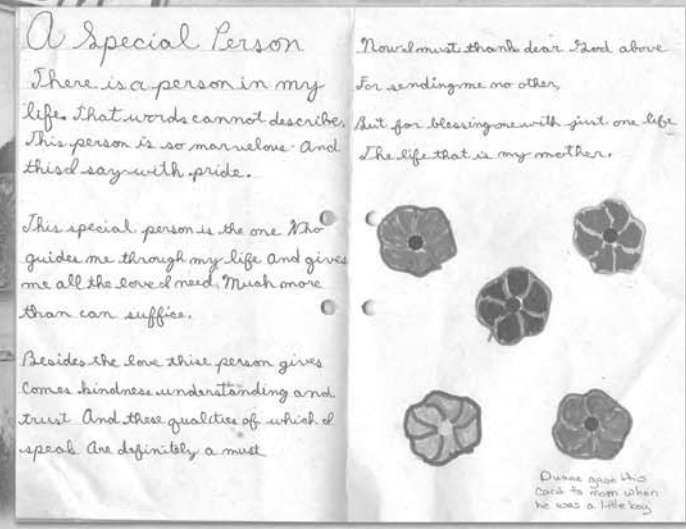 A Special Person
There is a person in my
life. That words cannot describe.
This person is so marvelous. And
this I say with pride.
This special person is the one Who
guides me through my life And gives
me all the love I need. Much more
than can suffice.
Besides the love thise person gives
Comes kindness understanding and
trust And these qualities of which I
speak Are definitely a must
Now I must thank dear God above
For sending me no other,
But for blessing me with just one life
The life that is my mother.
Duane gave this
card to mom when
he was a little boy